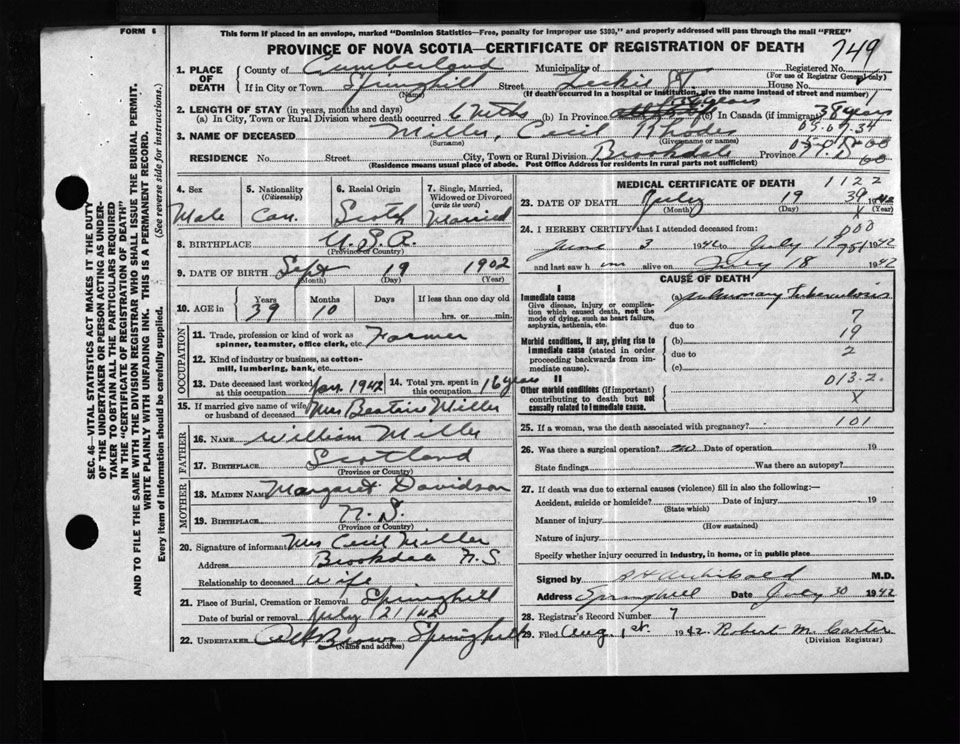 FORM 6
This form if placed in an envelope, marked "Dominion Statistics—Free, penalty for improper use $300," and properly addressed will pass through the mail "FREE"
PROVINCE OF NOVA SCOTIA—CERTIFICATE OF REGISTRATION OF DEATH
749
1. PLACE OF DEATH
County of Cumberland Municipality of Registered No.
(For use of Registrar General only)
If in City or Town Springhill Street St. House No.
(Name) (If death occurred in a hospital or institution, give the name instead of street and number)
2. LENGTH OF STAY (in years, months and days)
(a) In City, Town or Rural Division where death occurred 6 (b) In Province years (c) In Canada (if immigrant) 38 years
3. NAME OF DECEASED Miller, Cecil Rhodes
(Surname) (Given name or names)
05.07.34
RESIDENCE No. Street City, Town or Rural Division Brookdale Province
(Residence means usual place of abode. Post Office Address for residents in rural parts not sufficient)
SEC. 46—VITAL STATISTICS ACT MAKES IT THE DUTY
OF THE UNDERTAKER OR PERSON ACTING AS UNDER-
TAKER TO OBTAIN ALL THE PARTICULARS REQUIRED
IN THE "CERTIFICATE OF REGISTRATION OF DEATH"
AND TO FILE THE SAME WITH THE DIVISION REGISTRAR WHO SHALL ISSUE THE BURIAL PERMIT.
WRITE PLAINLY WITH UNFADING INK. THIS IS A PERMANENT RECORD.
Every item of information should be carefully supplied. (See reverse side for instructions.)
4. Sex
Male
5. Nationality
(Citizenship)
Can.
6. Racial Origin
Scotch
7. Single, Married, Widowed or Divorced
(write the word)
Married
8. BIRTHPLACE U.S.A.
(Province or Country)
9. DATE OF BIRTH Sept 19 1902
(Month) (Day) (Year)
10. AGE in Years Months Days If less than one day old
39 10 hrs. or min.
OCCUPATION
11. Trade, profession or kind of work as spinner, teamster, office clerk, etc. Farmer
12. Kind of industry or business, as cotton-mill, lumbering, bank, etc.
13. Date deceased last worked at this occupation Jan. 1942
14. Total yrs. spent in this occupation 16 years
15. If married give name of wife or husband of deceased Mrs Beatrice Miller
FATHER
16. NAME William Miller
17. BIRTHPLACE Scotland
(Province or Country)
MOTHER
18. MAIDEN NAME Margaret Davidson
19. BIRTHPLACE N.S.
(Province or Country)
20. Signature of informant Mrs Cecil Miller
Address Brookdale N.S
Relationship to deceased Wife
21. Place of Burial, Cremation or Removal Springhill
Date of burial or removal July 21/42
22. UNDERTAKER Brown Springhill
(Name and address)
MEDICAL CERTIFICATE OF DEATH 1122
23. DATE OF DEATH July 19 1942
39
(Month) (Day) (Year)
24. I HEREBY CERTIFY that I attended deceased from:
June 3 1942 to July 18 1942
and last saw him alive on July 18 1942
CAUSE OF DEATH
I
Immediate cause
Give disease, injury or complication which caused death, not the mode of dying, such as heart failure, asphyxia, asthenia, etc.
(a) Pulmonary Tuberculosis
7
due to
19
Morbid conditions, if any, giving rise to immediate cause (stated in order proceeding backwards from immediate cause).
(b)
due to 2
(c)
II
Other morbid conditions (if important) contributing to death but not causally related to immediate cause.
013.2.
X
25. If a woman, was the death associated with pregnancy? 101
26. Was there a surgical operation? no Date of operation 19
State findings Was there an autopsy?
27. If death was due to external causes (violence) fill in also the following:—
Accident, suicide or homicide? Date of injury 19
(State which)
Manner of injury
(How sustained)
Nature of injury
Specify whether injury occurred in industry, in home, or in public place
Signed by Archibald M.D.
Address Springhill Date July 30 1942
28. Registrar's Record Number 7
29. Filed Aug. 1st. 1942 Robert M. Carter
(Division Registrar)